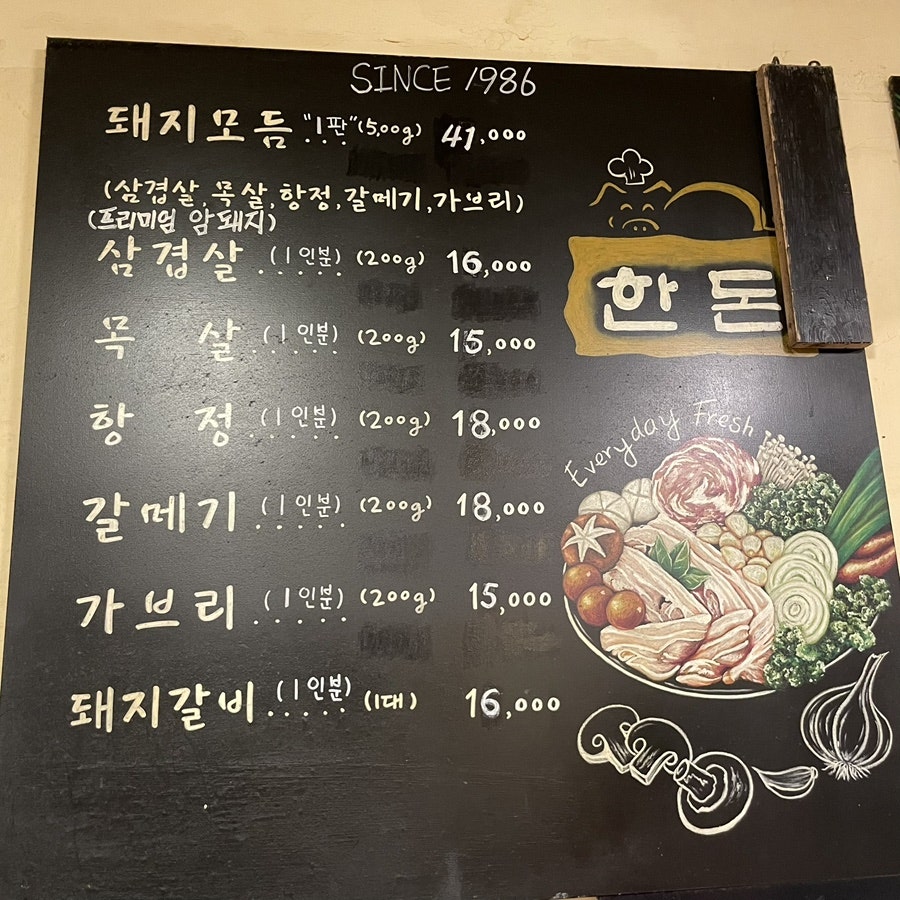 SINCE 1986
돼지모듬 "1판" (500g) 41,000
(삼겹살, 목살, 항정, 갈메기, 가브리)
(프리미엄 암돼지)
삼겹살 (1인분) (200g) 16,000
목살 (1인분) (200g) 15,000
항정 (1인분) (200g) 18,000
갈메기 (1인분) (200g) 18,000
가브리 (1인분) (200g) 15,000
돼지갈비 (1인분) (1대) 16,000
한돈
Everyday Fresh